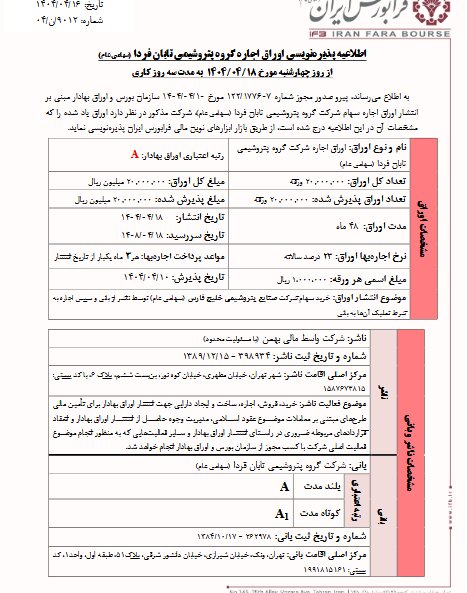 تاریخ: ۱۴۰۴/۰۴/۱۶
شماره: ۹۰۱۲/ن/۰۴
فرابورس ایران
IFB IRAN FARA BOURSE
اطلاعیه پذیره‌نویسی اوراق اجاره گروه پتروشیمی تابان فردا (سهامی عام)
از روز چهارشنبه مورخ ۱۴۰۴/۰۴/۱۸ به مدت سه روز کاری
به اطلاع می‌رساند، پیرو صدور مجوز شماره ۱۲۲/۱۷۷۶۰۷ مورخ ۱۴۰۴/۰۴/۱۰ سازمان بورس و اوراق بهادار مبنی بر
انتشار اوراق اجاره سهام شرکت گروه پتروشیمی تابان فردا (سهامی عام) شرکت مذکور در نظر دارد اوراق یاد شده را که
مشخصات آن در این اطلاعیه درج شده است، از طریق بازار ابزارهای نوین مالی فرابورس ایران پذیره‌نویسی نماید.
مشخصات اوراق
نام و نوع اوراق: اوراق اجاره شرکت گروه پتروشیمی
تابان فردا (سهامی عام)
رتبه اعتباری اوراق بهادار: A
تعداد کل اوراق: ۲۰,۰۰۰,۰۰۰ ورقه
مبلغ کل اوراق: ۲۰,۰۰۰,۰۰۰ میلیون ریال
تعداد اوراق پذیرش شده: ۲۰,۰۰۰,۰۰۰ ورقه
مبلغ پذیرش شده: ۲۰,۰۰۰,۰۰۰ میلیون ریال
مدت اوراق: ۴۸ ماه
تاریخ انتشار: ۱۴۰۴/۰۴/۱۸
تاریخ سررسید: ۱۴۰۸/۰۴/۱۸
نرخ اجاره‌بها اوراق: ۲۳ درصد سالانه
مواعد پرداخت اجاره‌بها: هر ۳ ماه یکبار از تاریخ انتشار
مبلغ اسمی هر ورقه: ۱,۰۰۰,۰۰۰ ریال
تاریخ پذیرش: ۱۴۰۴/۰۴/۱۰
موضوع انتشار اوراق: خرید سهام شرکت صنایع پتروشیمی خلیج فارس (سهامی عام) توسط ناشر از بانی و سپس اجاره به
شرط تملیک آن‌ها به بانی
مشخصات ناشر و بانی
ناشر
ناشر: شرکت واسط مالی بهمن (با مسئولیت محدود)
شماره و تاریخ ثبت ناشر: ۳۹۸۹۳۴ - ۱۳۸۹/۱۲/۱۵
مرکز اصلی اقامت ناشر: شهر تهران، خیابان مطهری، خیابان کوه نور، بن‌بست ششم، پلاک ۶، با کد پستی:
۱۵۸۷۶۷۳۸۱۵
موضوع فعالیت ناشر: خرید، فروش، اجاره، ساخت و ایجاد دارایی جهت انتشار اوراق بهادار برای تأمین مالی
طرح‌های مبتنی بر معاملات موضوع عقود اسلامی، مدیریت وجوه حاصل از انتشار اوراق بهادار و انعقاد
قراردادهای مربوطه ضروری در راستای انتشار اوراق بهادار و سایر فعالیت‌هایی که به منظور انجام موضوع
فعالیت اصلی شرکت با کسب مجوز از سازمان بورس و اوراق بهادار انجام خواهد شد.
بانی
بانی: شرکت گروه پتروشیمی تابان فردا (سهامی عام)
رتبه اعتباری
بلند مدت A
کوتاه مدت A1
شماره و تاریخ ثبت بانی: ۲۶۲۹۷۸ - ۱۳۸۴/۱۰/۱۷
مرکز اصلی اقامت بانی: تهران، ونک، خیابان شیرازی، خیابان دانشور شرقی، پلاک ۵۱، طبقه اول، واحد۱، کد
پستی: ۱۹۹۱۸۱۵۱۶۱